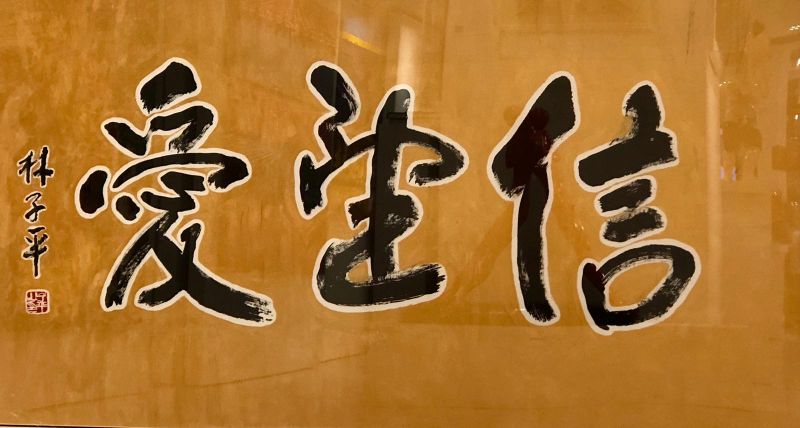 信望愛
林子平